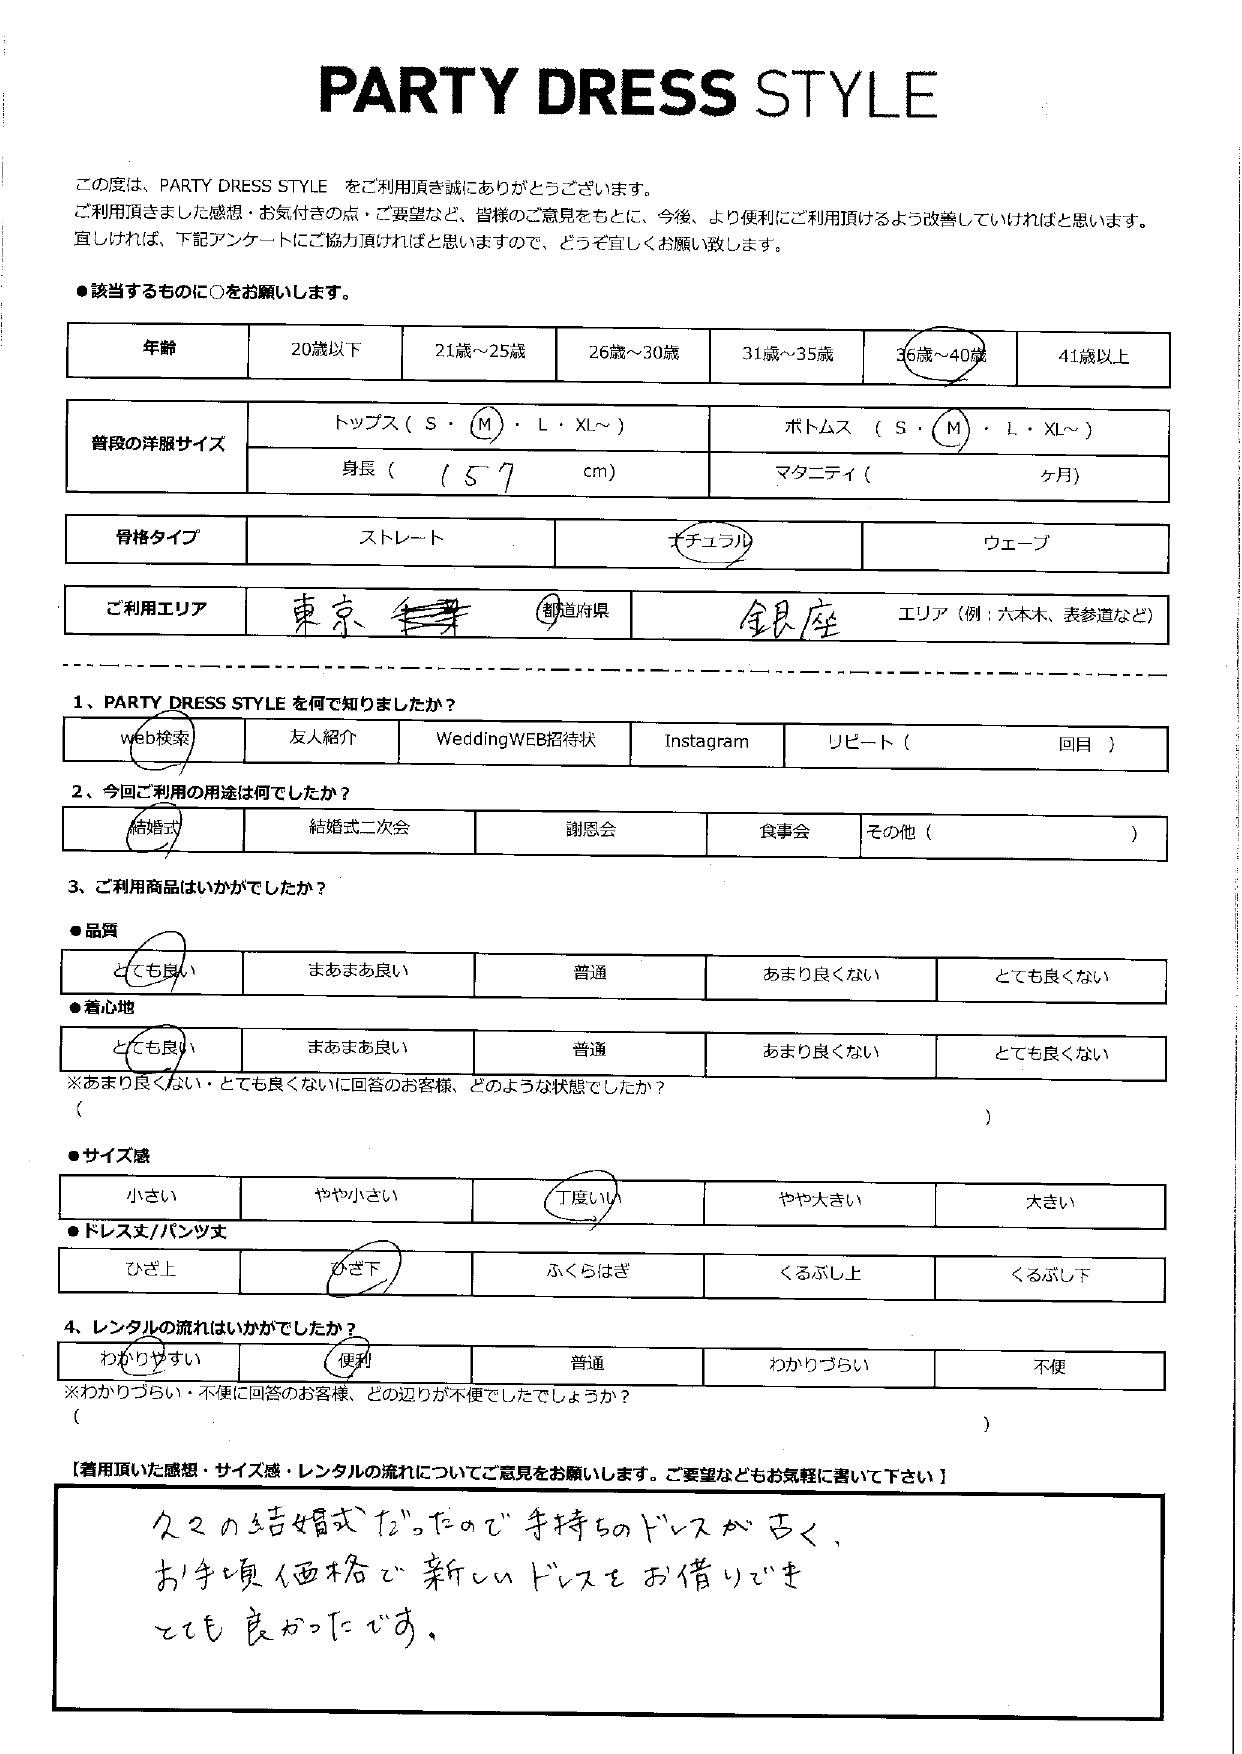 PARTY DRESS STYLE
この度は、PARTY DRESS STYLE をご利用頂き誠にありがとうございます。
ご利用頂きました感想・お気付きの点・ご要望など、皆様のご意見をもとに、今後、より便利にご利用頂けるよう改善していければと思います。
宜しければ、下記アンケートにご協力頂ければと思いますので、どうぞ宜しくお願い致します。
●該当するものに○をお願いします。
年齢 20歳以下 21歳～25歳 26歳～30歳 31歳～35歳 36歳～40歳 41歳以上
普段の洋服サイズ トップス ( S ・ M ・ L ・ XL～ ) ボトムス ( S ・ M ・ L ・ XL～ )
身長 ( 157 cm) マタニティ ( ケ月)
骨格タイプ ストレート ナチュラル ウェーブ
ご利用エリア 東京 都道府県 銀座 エリア（例：六本木、表参道など）
1、PARTY DRESS STYLE を何で知りましたか？
web検索 友人紹介 WeddingWEB招待状 Instagram リピート ( 回目 )
2、今回ご利用の用途は何でしたか？
結婚式 結婚式二次会 謝恩会 食事会 その他 ( )
3、ご利用商品はいかがでしたか？
●品質
とても良い まあまあ良い 普通 あまり良くない とても良くない
●着心地
とても良い まあまあ良い 普通 あまり良くない とても良くない
※あまり良くない・とても良くないに回答のお客様、どのような状態でしたか？
( )
●サイズ感
小さい やや小さい 丁度いい やや大きい 大きい
●ドレス丈/パンツ丈
ひざ上 ひざ下 ふくらはぎ くるぶし上 くるぶし下
4、レンタルの流れはいかがでしたか？
わかりやすい 便利 普通 わかりづらい 不便
※わかりづらい・不便に回答のお客様、どの辺りが不便でしたでしょうか？
( )
【着用頂いた感想・サイズ感・レンタルの流れについてご意見をお願いします。ご要望などもお気軽に書いて下さい】
久々の結婚式だったので手持ちのドレスが古く、
お手頃価格で新しいドレスをお借りでき
とても良かったです。